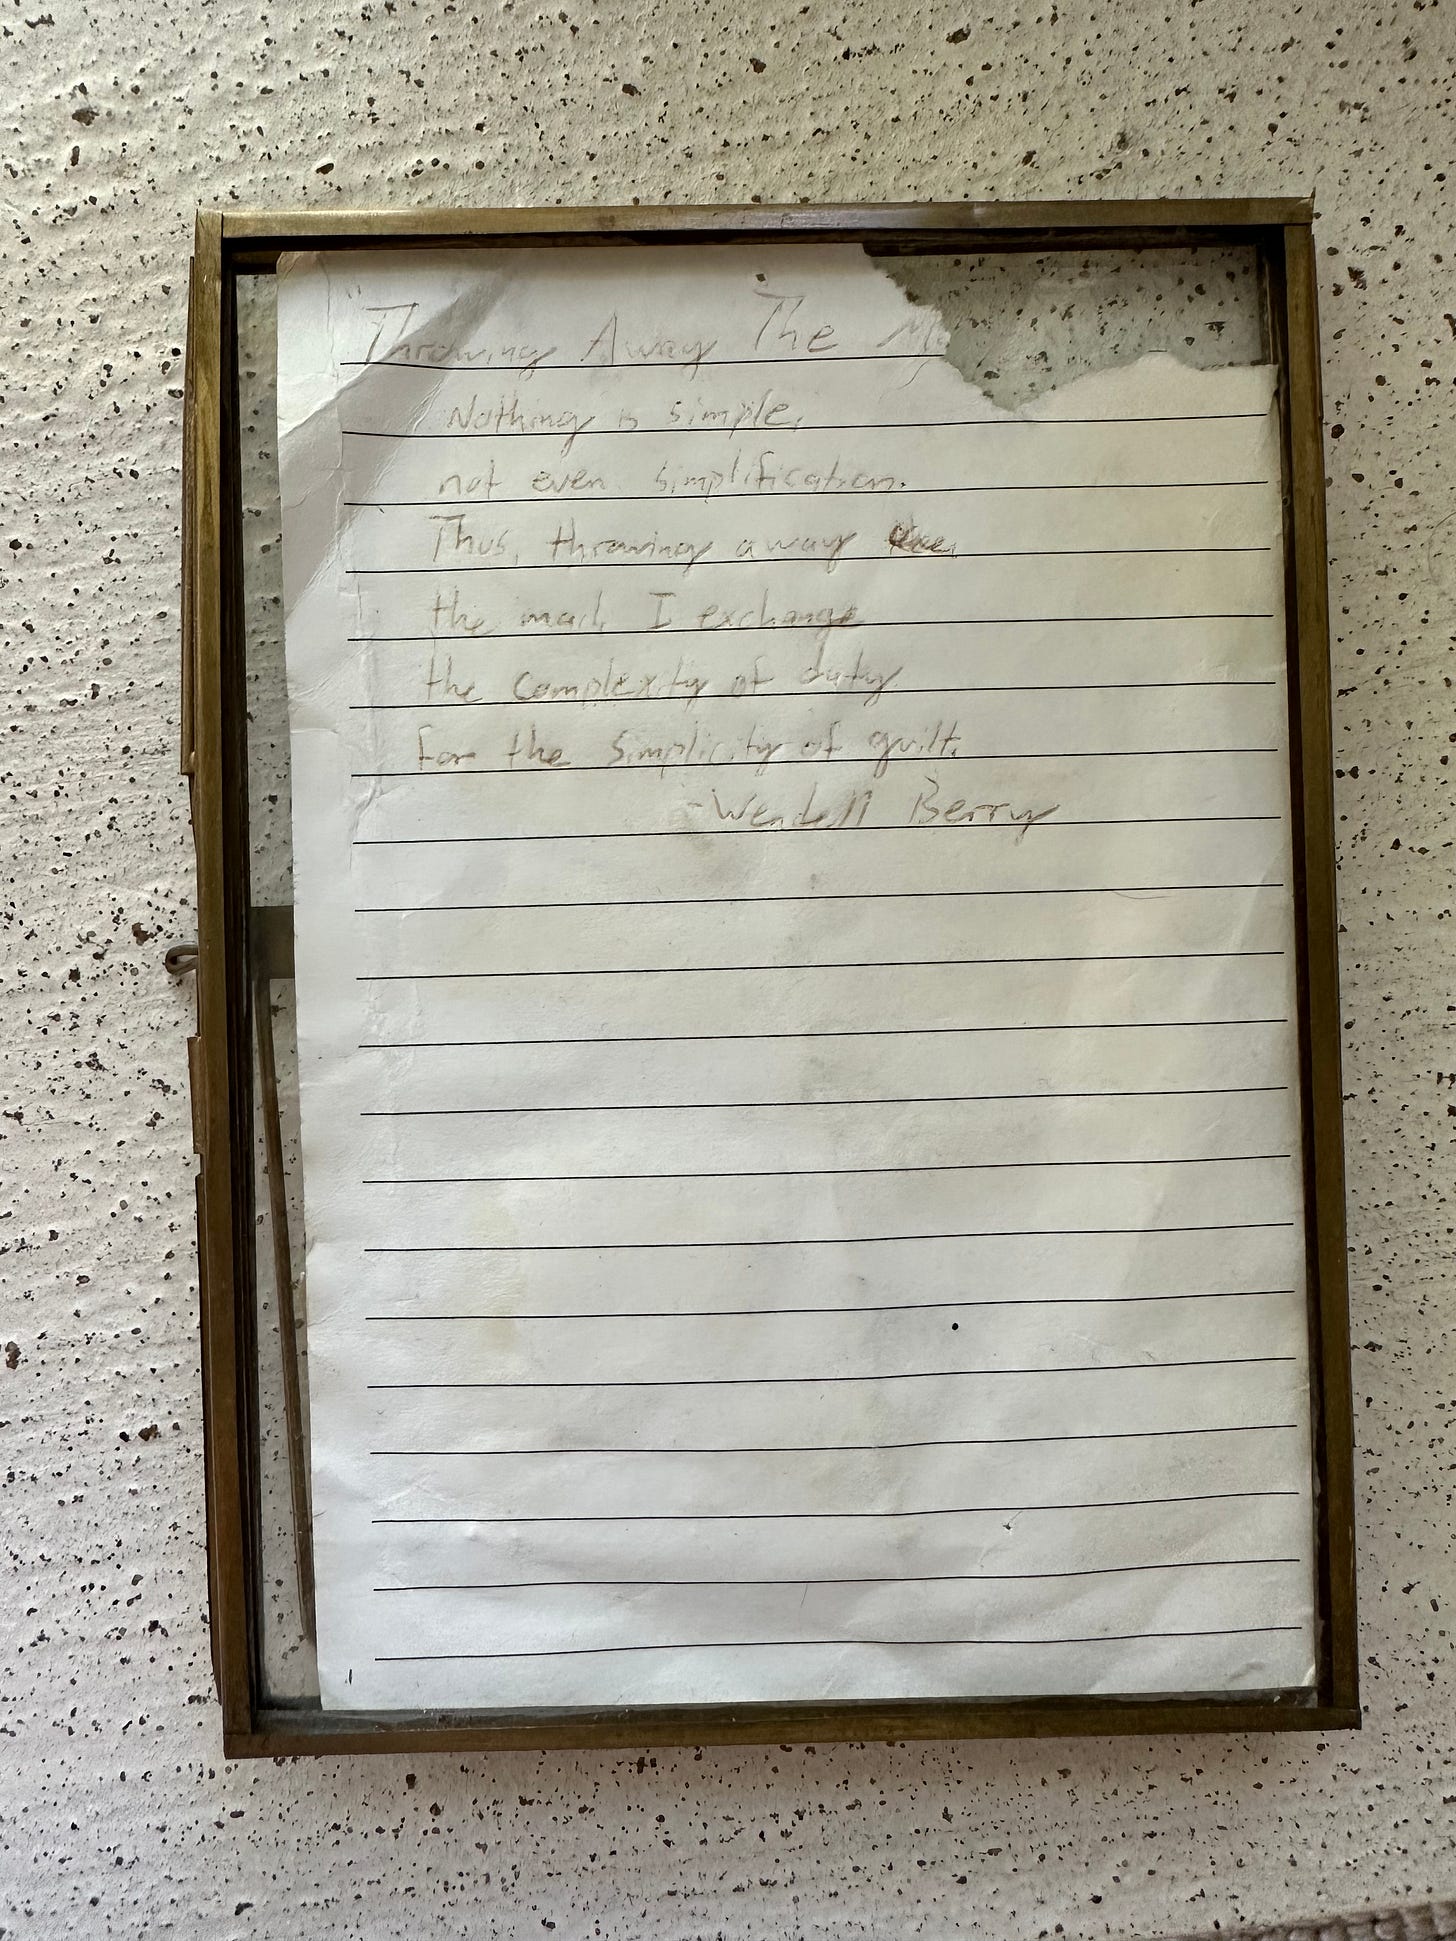 "Throwing Away The M
Nothing is simple,
not even simplification.
Thus, throwing away
the mail, I exchange
the complexity of duty
for the simplicity of guilt.
-Wendell Berry